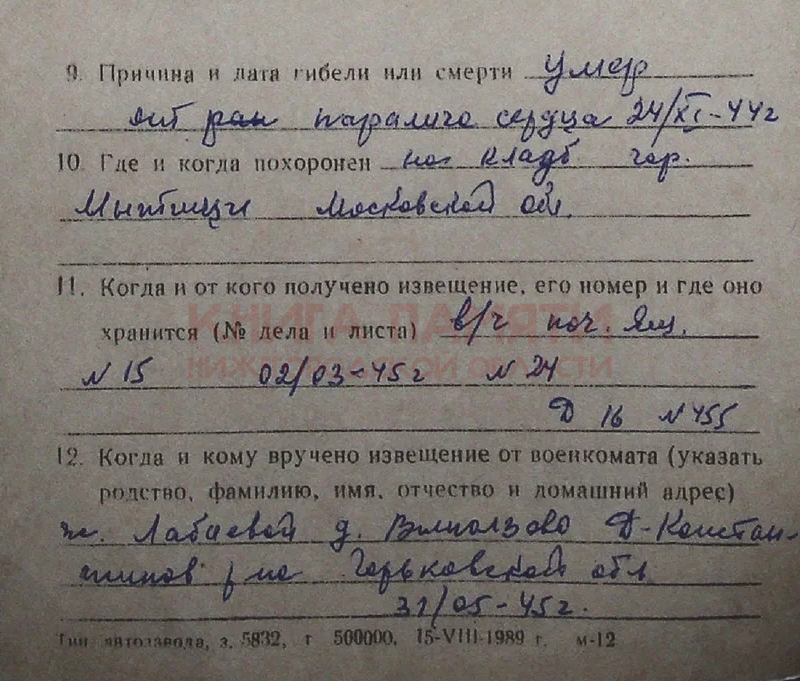 9. Причина и дата гибели или смерти умер
от ран паралича сердца 24/XI-44г
10. Где и когда похоронен на кладб. гор.
Мытищи Московской обл.
11. Когда и от кого получено извещение, его номер и где оно
хранится (№ дела и листа) в/ч поч. ящ.
КНИГА ПАМЯТИ
НИЖЕГОРОДСКОЙ ОБЛАСТИ
N 15 02/03-45г N 24
Д 16 N 455
12. Когда и кому вручено извещение от военкомата (указать
родство, фамилию, имя, отчество и домашний адрес)
ж. Лабаевой д. Выползово Д-Констан-
тинов р-на Горьковской обл
31/05-45г.
Тип. автозавода, з. 5832, т 500000, 15-VIII-1989 г. м-12